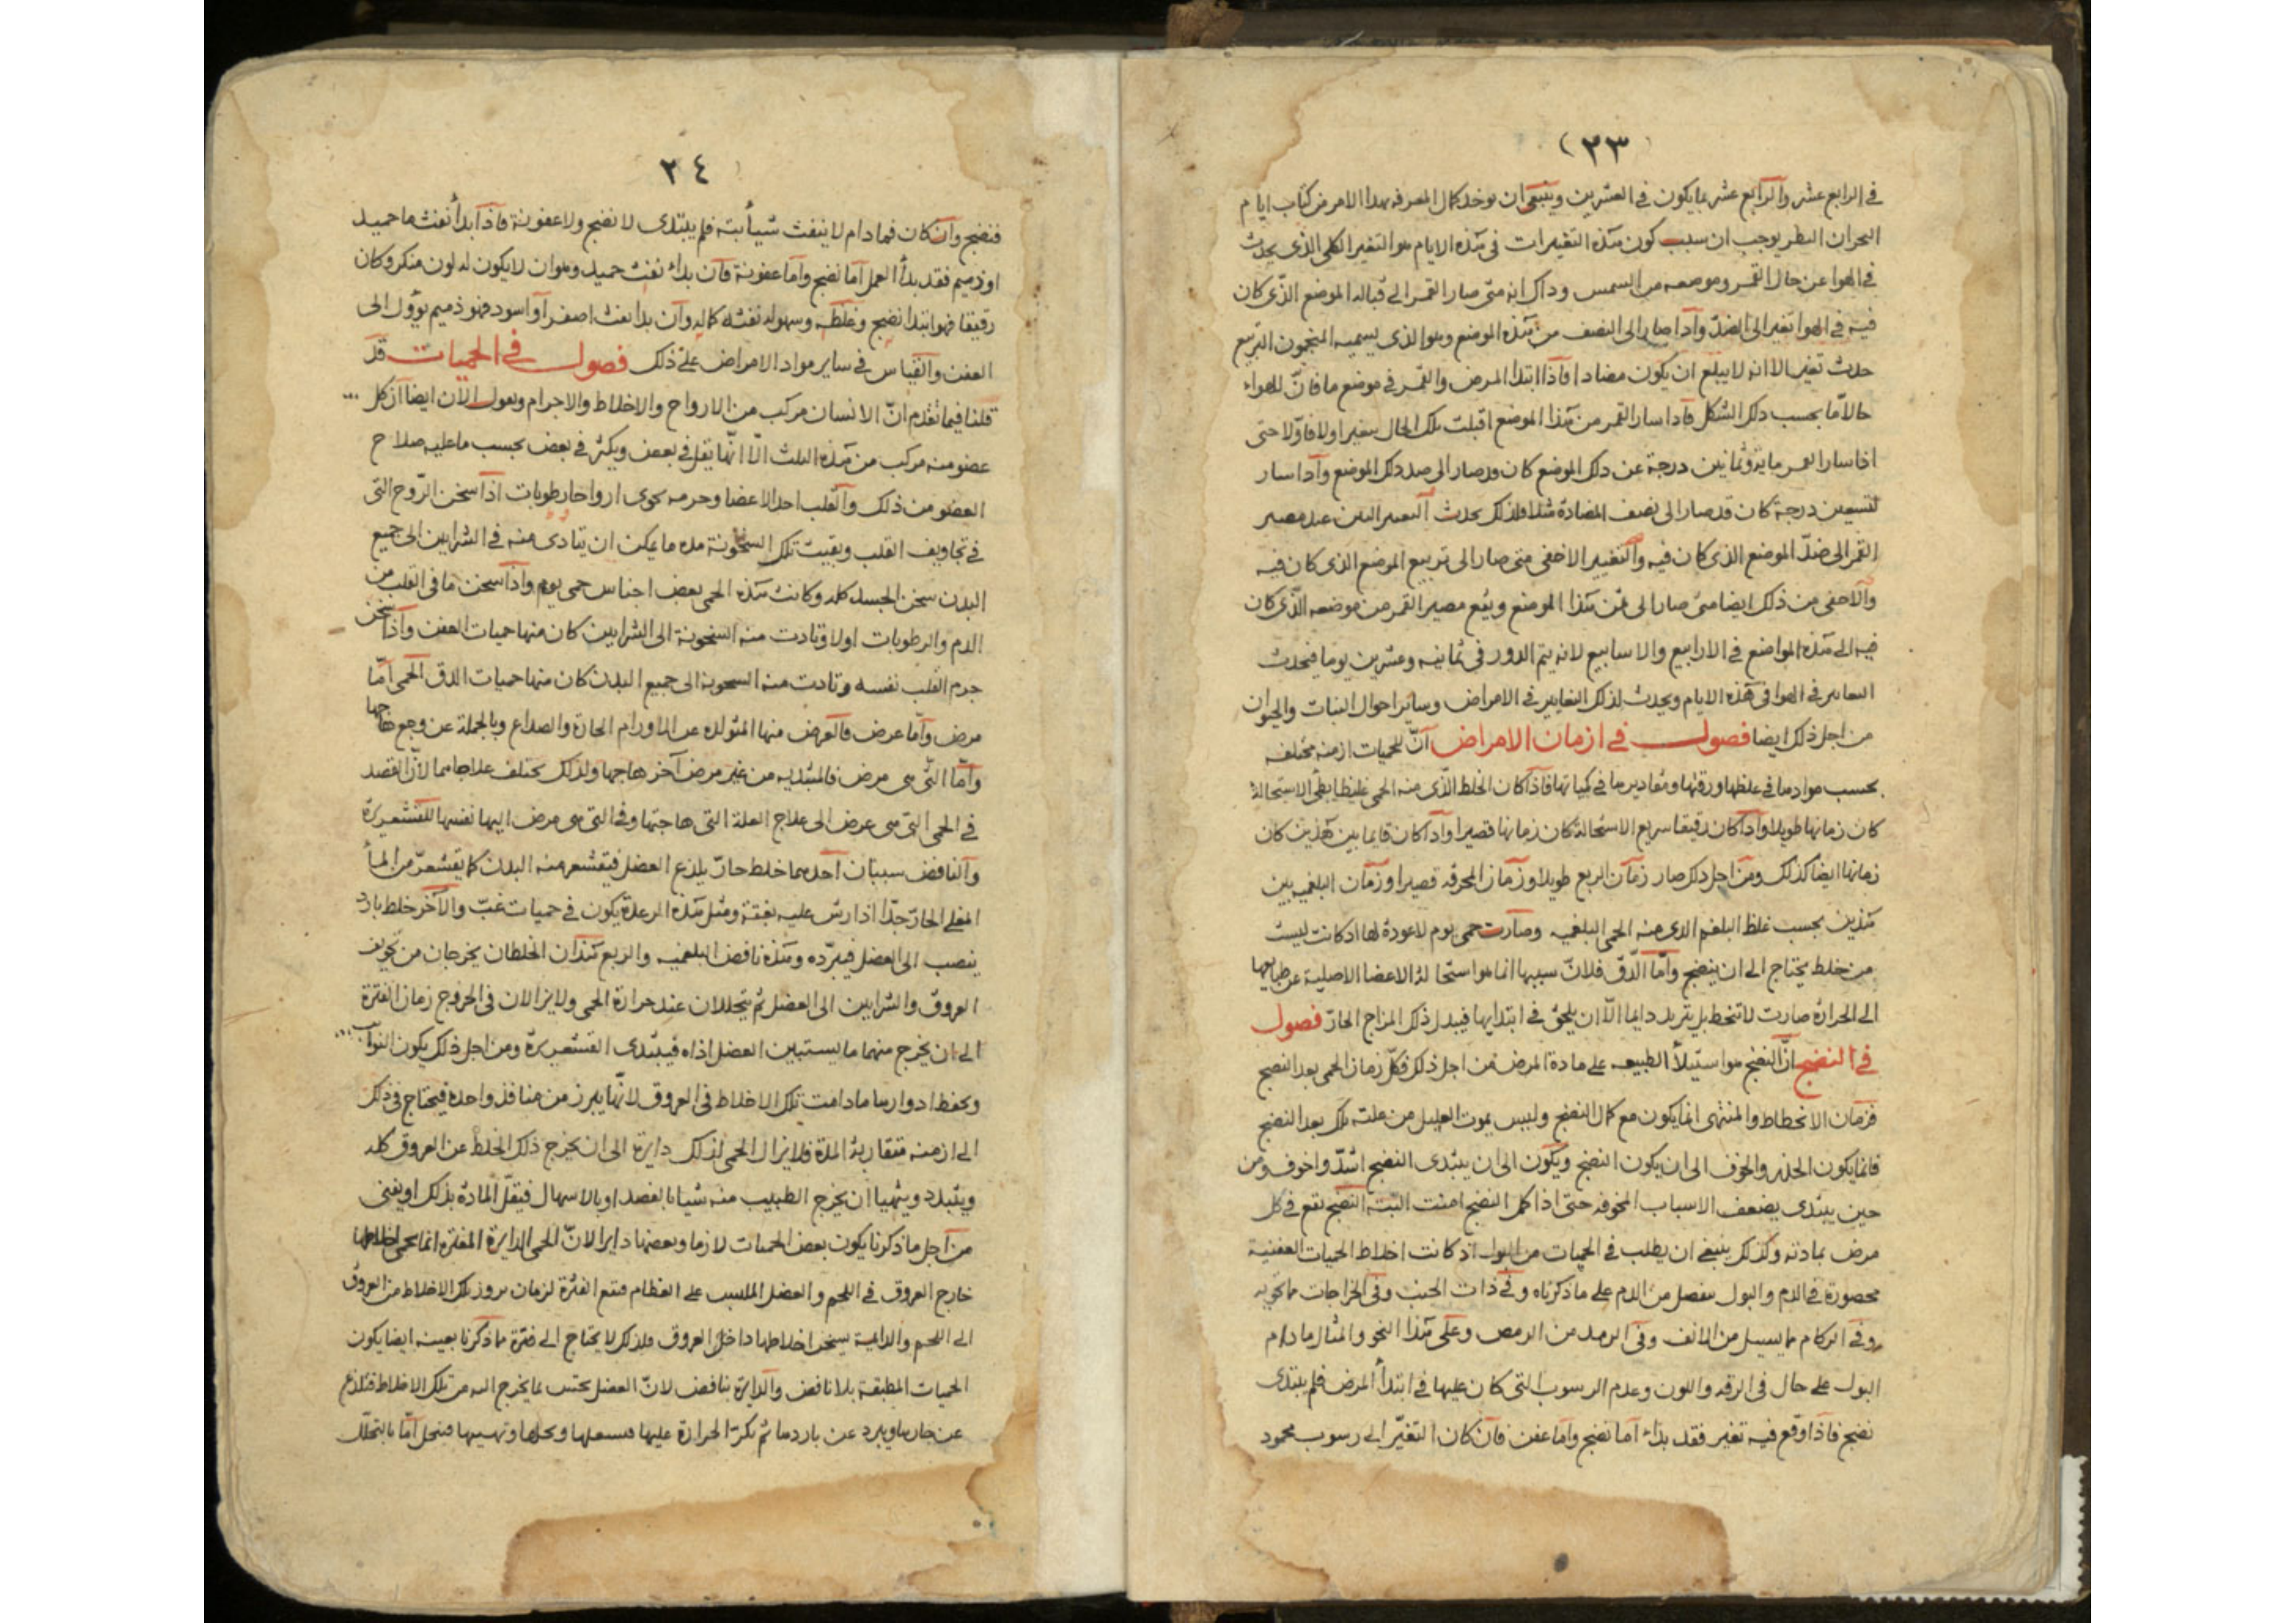 ٢٣
في الرابع عشر والرابع عشر بما يكون في العشرين وينبغي ان يوخذ كمال المعرفه بهذا الامر من كتاب ايام
البحران النظر يوجب ان سبب كون هذه التغيرات في هذه الايام هو التغير الكلي الذي يحدث
في الهوا عن حال القمر وموضعه من الشمس وذاك انه متى صار القمر الى قباله الموضع الذي كان
فيه في الهوا تغير الى الضدّ واذا صار الى النصف من هذه الموضع وهو الذي يسميه المنجمون التربيع
حدث تغير الا انه لا يبلغ ان يكون مضادا فاذا ابتدا المرض والقمر في موضع ما فانّ للهواء
حالا مّا بحسب ذلك الشكل فاذا سار القمر من هذا الموضع اقبلت تلك الحال بتغير اولا فاولا حتى
اذا سار القمر ماية وثمانين درجة عن ذلك الموضع كان قد صار الى ضد ذلك الموضع واذا سار
تسعين درجة كان قد صار الى نصف المضادة فلذلك يحدث التغير البين عند مصير
القمر الى ضدّ الموضع الذي كان فيه والتغيير الاخفى متى صار الى تربيع الموضع الذي كان فيه
والاخفى من ذلك ايضا متى صار الى ثمن هذا الموضع ويقع مصير القمر من موضعه الذي كان
فيه الى هذه المواضع في الارابيع والاسابيع لانه يتم الدور في ثمانيه وعشرين يوما فيحدث
التغايير في الهوا في هذه الايام ويحدث لذلك التغايير في الامراض وساير احوال النبات والحيوان
من اجل ذلك ايضا فصول في ازمان الامراض انّ للحميات ازمنه مختلفه
بحسب موادها في غلظها ورقتها ومقاديرها في كمياتها فاذا كان الخلط الذي منه الحمى غليظا بطئ الاستحالة
كان زمانها طويلا واذا كان رقيقا سريع الاستحالة كان زمانها قصيرا واذا كان فيما بين هذين كان
زمانها ايضا كذلك ومن اجل ذلك صار زمان الربع طويلا وزمان المحرقه قصيرا وزمان البلغميه بين
هذين بحسب غلظ البلغم الذي منه الحمى البلغميه وصارت حمى يوم لا عودة لها اذ كانت ليست
من خلط يحتاج الى ان ينضج وامّا الدّق فلانّ سببها انما هو استحالة الاعضا الاصلية عن طبايعها
الى الحرارة صارت لا تنحط بل تتزيد دايما الّا ان يلحق في ابتدايها فيبدل ذلك المزاج الحارّ فصول
في النضج انّ النضج هو استيلأ الطبيعه على مادة المرض فمن اجل ذلك فكلّ زمان الحمى بعد النضج
فزمان الانحطاط والمنتهى انما يكون مع كمال النضج وليس يموت العليل من علته تلك بعد النضج
فانما يكون الحذر والخوف الى ان يكون النضج ويكون الى ان يبتدى النضج اشدّ واخوف ومن
حين يبتدى يضعف الاسباب المخوفه حتى اذا كمل النضج امنت البتة النضج يقع في كل
مرض بمادته وكذلك ينبغي ان يطلب في الحميات من البول اذ كانت اخلاط الحميات العفنية
محصورة في الدم والبول ينفصل من الدم على ما ذكرناه وفي ذات الجنب وفي الخراجات مما تحويه
وفي الزكام مما يسيل من الانف وفي الرمد من الرمص وعلى هذا النحو والمثال ما دام
البول على حال في الرقه واللون وعدم الرسوب التي كان عليها في ابتدأ المرض فلم يبتدى
نضج فاذا وقع فيه تغير فقد بداء امّا نضج وامّا عفن فان كان التغيّر الى رسوب محمود
٢٤
فنضج وان كان فما دام لا ينفث شيأ بته فلم يبتدى لا نضج ولا عفونة فاذا بدأ نفث ما حميد
او ذميم فقد بدأ العمل امّا نضج وامّا عفونة فان بداء نفث حميد وهو ان لا يكون له لون منكر وكان
رقيقا فهو ابتدا نضج وغلظه وسهولة نفثه كماله وان بدا نفث اصفر او اسود فهو ذميم يؤول الى
العفن والقياس في ساير مواد الامراض على ذلك فصول في الحميات قد
قلنا فيما تقدم انّ الانسان مركب من الارواح والاخلاط والاجرام ونعول الآن ايضا ان كل
عضو منه مركب من هذه الثلث الّا انّها يقل في بعض ويكثر في بعض بحسب ما عليه صلاح
العضو من ذلك والقلب احد الاعضا وجرمه يحوى ارواحا رطوبات اذا سخن الرّوح التى
في تجاويف القلب وبقيت تلك السخونة مده ما يمكن ان يتادى منه في الشرايين الى جميع
البدن سخن الجسد كله وكانت هذه الحمى بعض اجناس حمى يوم واذا سخن ما في القلب من
الدم والرطوبات اولا وتادت منه السخونة الى الشرايين كان منها حميات العفن واذا سخن
جرم القلب نفسه وتادت منه السخونة الى جميع البدن كان منها حميات الدق الحمى امّا
مرض وامّا عرض فالعرض منها المتولده عن الاورام الحارة والصداع وبالجملة عن وجع هاجها
وامّا التي هي مرض فالمبتديه من غير مرض آخر هاجها ولذلك يختلف علاجاهما لانّ القصد
في الحمى التي هي عرض الى علاج العلة التي هاجتها وفي التي هي مرض اليها نفسها للقشعريرة
والنافض سببان احدهما خلط حارّ يلذع العضل فيقشعر منه البدن كما يقشعرّ من المأ
المغلي الحارّ جدّا اذا رش عليه بغتة ومثل هذه الرعدة يكون في حميات غبّ والآخر خلط بارد
ينصب الى العضل فيبرّده وهذه نافض البلغميه والربع هذان الخلطان يخرجان من تجويف
العروق والشرايين الى العضل ثم يتحللان عند حرارة الحمى ولا يزالان في الخروج زمان الفترة
الى ان يخرج منهما ما يستبين العضل اذاه فيبتدى القشعريرة ومن اجل ذلك يكون النوآيب
وتحفظ ادوارها ما دامت تلك الاخلاط في العروق لانّها يبرز من منافذ واحدة فيحتاج في ذلك
الى ازمنه متقاربة المدة فلا يزال الحمى لذلك دايرة الى ان يخرج ذلك الخلط عن العروق كله
ويتبدد ويتهيا ان يخرج الطبيب منه شيأ بالفصد او بالاسهال فيقلّ المادة بذلك او يفنى
من اجل ما ذكرنا يكون بعض الحميات لازما وبعضها دايرا لانّ الحمى الدايرة المفترة انما يحمى اخلاطها
خارج العروق في اللحم والعضل الملبس على العظام فتقع الفترة لزمان بروز تلك الاخلاط من العروق
الى اللحم والدايمة يسخن اخلاطها داخل العروق فلذلك لا يحتاج الى فترة مما ذكرنا بعينه ايضا يكون
الحميات المطبقة بلا نافض والدايرة بنافض لانّ العضل يحتس بما يخرج اليه من تلك الاخلاط فتلذع
عن حارها ويبرد عن باردها ثم تكرّ الحرارة عليها فيسعلها ويحلها وتهييها فينحل امّا بالتحلّل